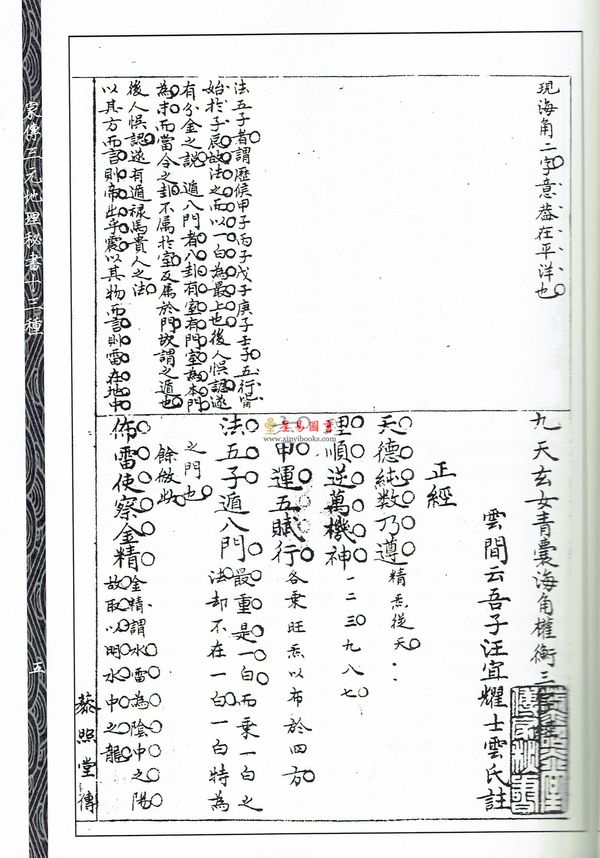 現海角二字意蓋在平洋也
法五子者謂歷侯甲子丙子戊子庚子壬子五行皆
始於子辰故法之而以一白為最上也後人悞認遂
有分金之說 遁八門者八卦有室有門室為本門
為求而當令之卦不属於室反属於門故謂之遁也
後人悞認遂有遁禄馬貴人之法
以其方而言則帝出乎震以其物而言則雷在地中
九天玄女青囊海角權衡三
雲間云吾子汪宜耀士雲氏註
正經
天德純数乃遵 精炁從天
理順逆萬機神 一二三九八七
甲運五賦行 各乘旺炁以布於四方
法五子遁八門 最重是一白而乘一白之
法却不在一白一白特為
之門也 餘倣此
佈雷使察金精 金精謂水雷為陰中之陽
故取以明水中之龍
家傳三元地理秘書十二種
五
蔡照堂傳
星易圖書
www.xinyibooks.com